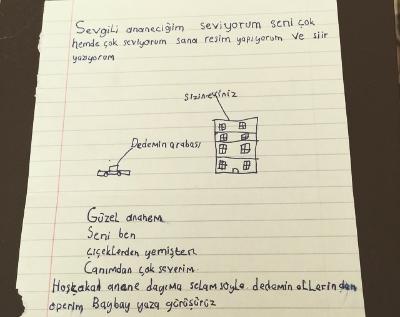 Sevgili ananeciğim seviyorum seni çok
hemde çok seviyorum sana resim yapıyorum ve şiir
yazıyorum
sizin eviniz
Dedemin arabası
Güzel ananem
Seni ben
çiçeklerden yemişten
Canımdan çok severim
Hoşçakal anane dayıma selam söyle dedemin ellerinden
öperim Baybay yaza görüşürüz